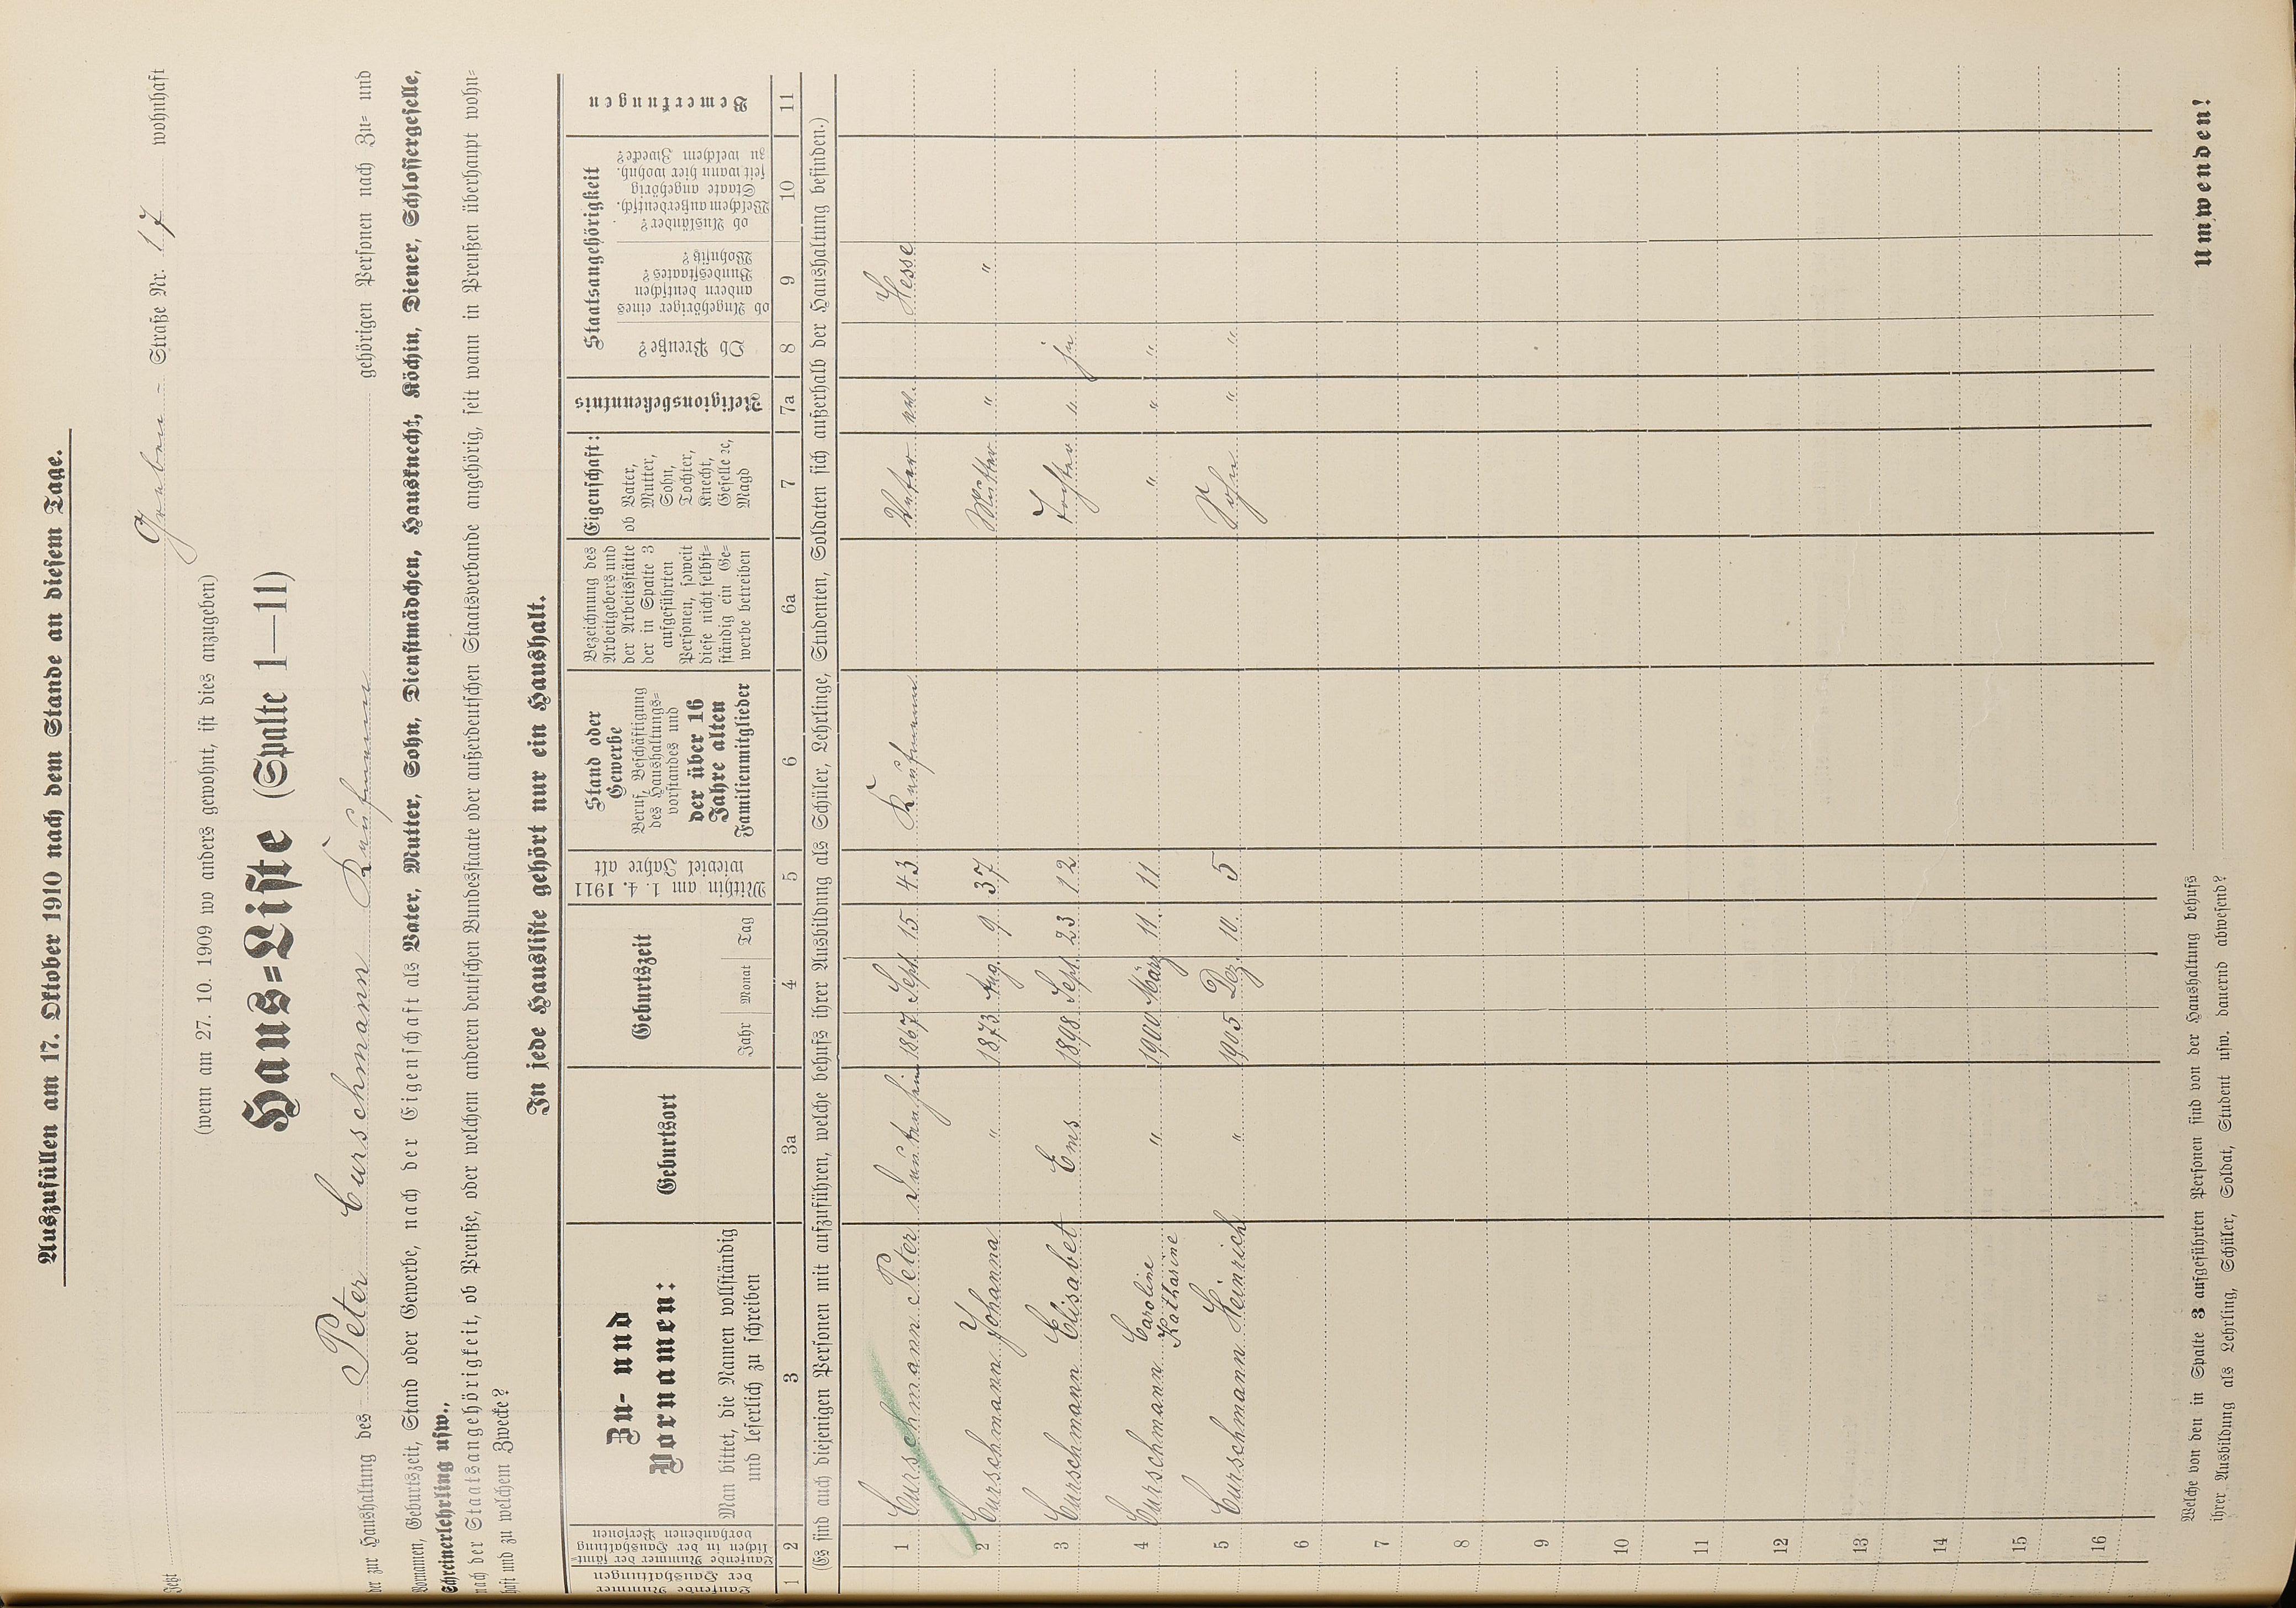 Auszufüllen am 17. Oktober 1910 nach dem Stande an diesem Tage.
Jetzt Graben - Straße Nr. 17 wohnhaft
(wenn am 27. 10. 1909 wo anders gewohnt, ist dies anzugeben)
Haus=Liste (Spalte 1—11)
der zur Haushaltung des Peter Curschmann Kaufmann gehörigen Personen nach Zu= und
Vornamen, Geburtszeit, Stand oder Gewerbe, nach der Eigenschaft als Vater, Mutter, Sohn, Dienstmädchen, Hausknecht, Köchin, Diener, Schlossergeselle,
Schreinerlehrling usw.,
nach der Staatsangehörigkeit, ob Preuße, oder welchem anderen deutschen Bundesstaate oder außerdeutschen Staatsverbande angehörig, seit wann in Preußen überhaupt wohn=
haft und zu welchem Zwecke?
In jede Hausliste gehört nur ein Haushalt.
Laufende Nummer der Haushaltungen
Laufende Nummer der sämt=lichen in der Haushaltung vorhandenen Personen
Zu- und
Vornamen:
Man bittet, die Namen vollständig
und leserlich zu schreiben
Geburtsort
Geburtszeit
Jahr Monat Tag
Mithin am 1. 4. 1911
wieviel Jahre alt
Stand oder
Gewerbe
Beruf, Beschäftigung
des Haushaltungs=
vorstandes und
der über 16
Jahre alten
Familienmitglieder
Bezeichnung des
Arbeitgebers und
der Arbeitsstätte
der in Spalte 3
aufgeführten
Personen, soweit
diese nicht selbst=
ständig ein Ge=
werbe betreiben
Eigenschaft:
ob Vater,
Mutter,
Sohn,
Tochter,
Knecht,
Geselle ꝛc,
Magd
Religionsbekenntnis
Staatsangehörigkeit
Ob Preuße?
ob Angehöriger eines
andern deutschen
Bundesstaates?
Wohnsitz?
ob Ausländer?
Welchem außerdeutsch.
Staate angehörig
seit wann hier wohnh.
zu welchem Zwecke?
Bemerkungen
1 2 3 3a 4 5 6 6a 7 7a 8 9 10 11
(Es sind auch diejenigen Personen mit aufzuführen, welche behufs ihrer Ausbildung als Schüler, Lehrlinge, Studenten, Soldaten sich außerhalb der Haushaltung befinden.)
1 Curschmann Peter 1867 Sept. 15 43 Kaufmann Vater ev. Hesse
2 Curschmann Johanna " 1873 Aug. 9 37 Mutter " "
3 Curschmann Elisabet Ems 1898 Sept. 23 12 Tochter " ja
4 Curschmann Caroline Katharine " 1900 März 11 11 " " "
5 Curschmann Heinrich " 1905 Dez. 10 5 Sohn " "
6
7
8
9
10
11
12
13
14
15
16
Welche von den in Spalte 3 aufgeführten Personen sind von der Haushaltung behufs
ihrer Ausbildung als Lehrling, Schüler, Soldat, Student usw. dauernd abwesend?
Umwenden!